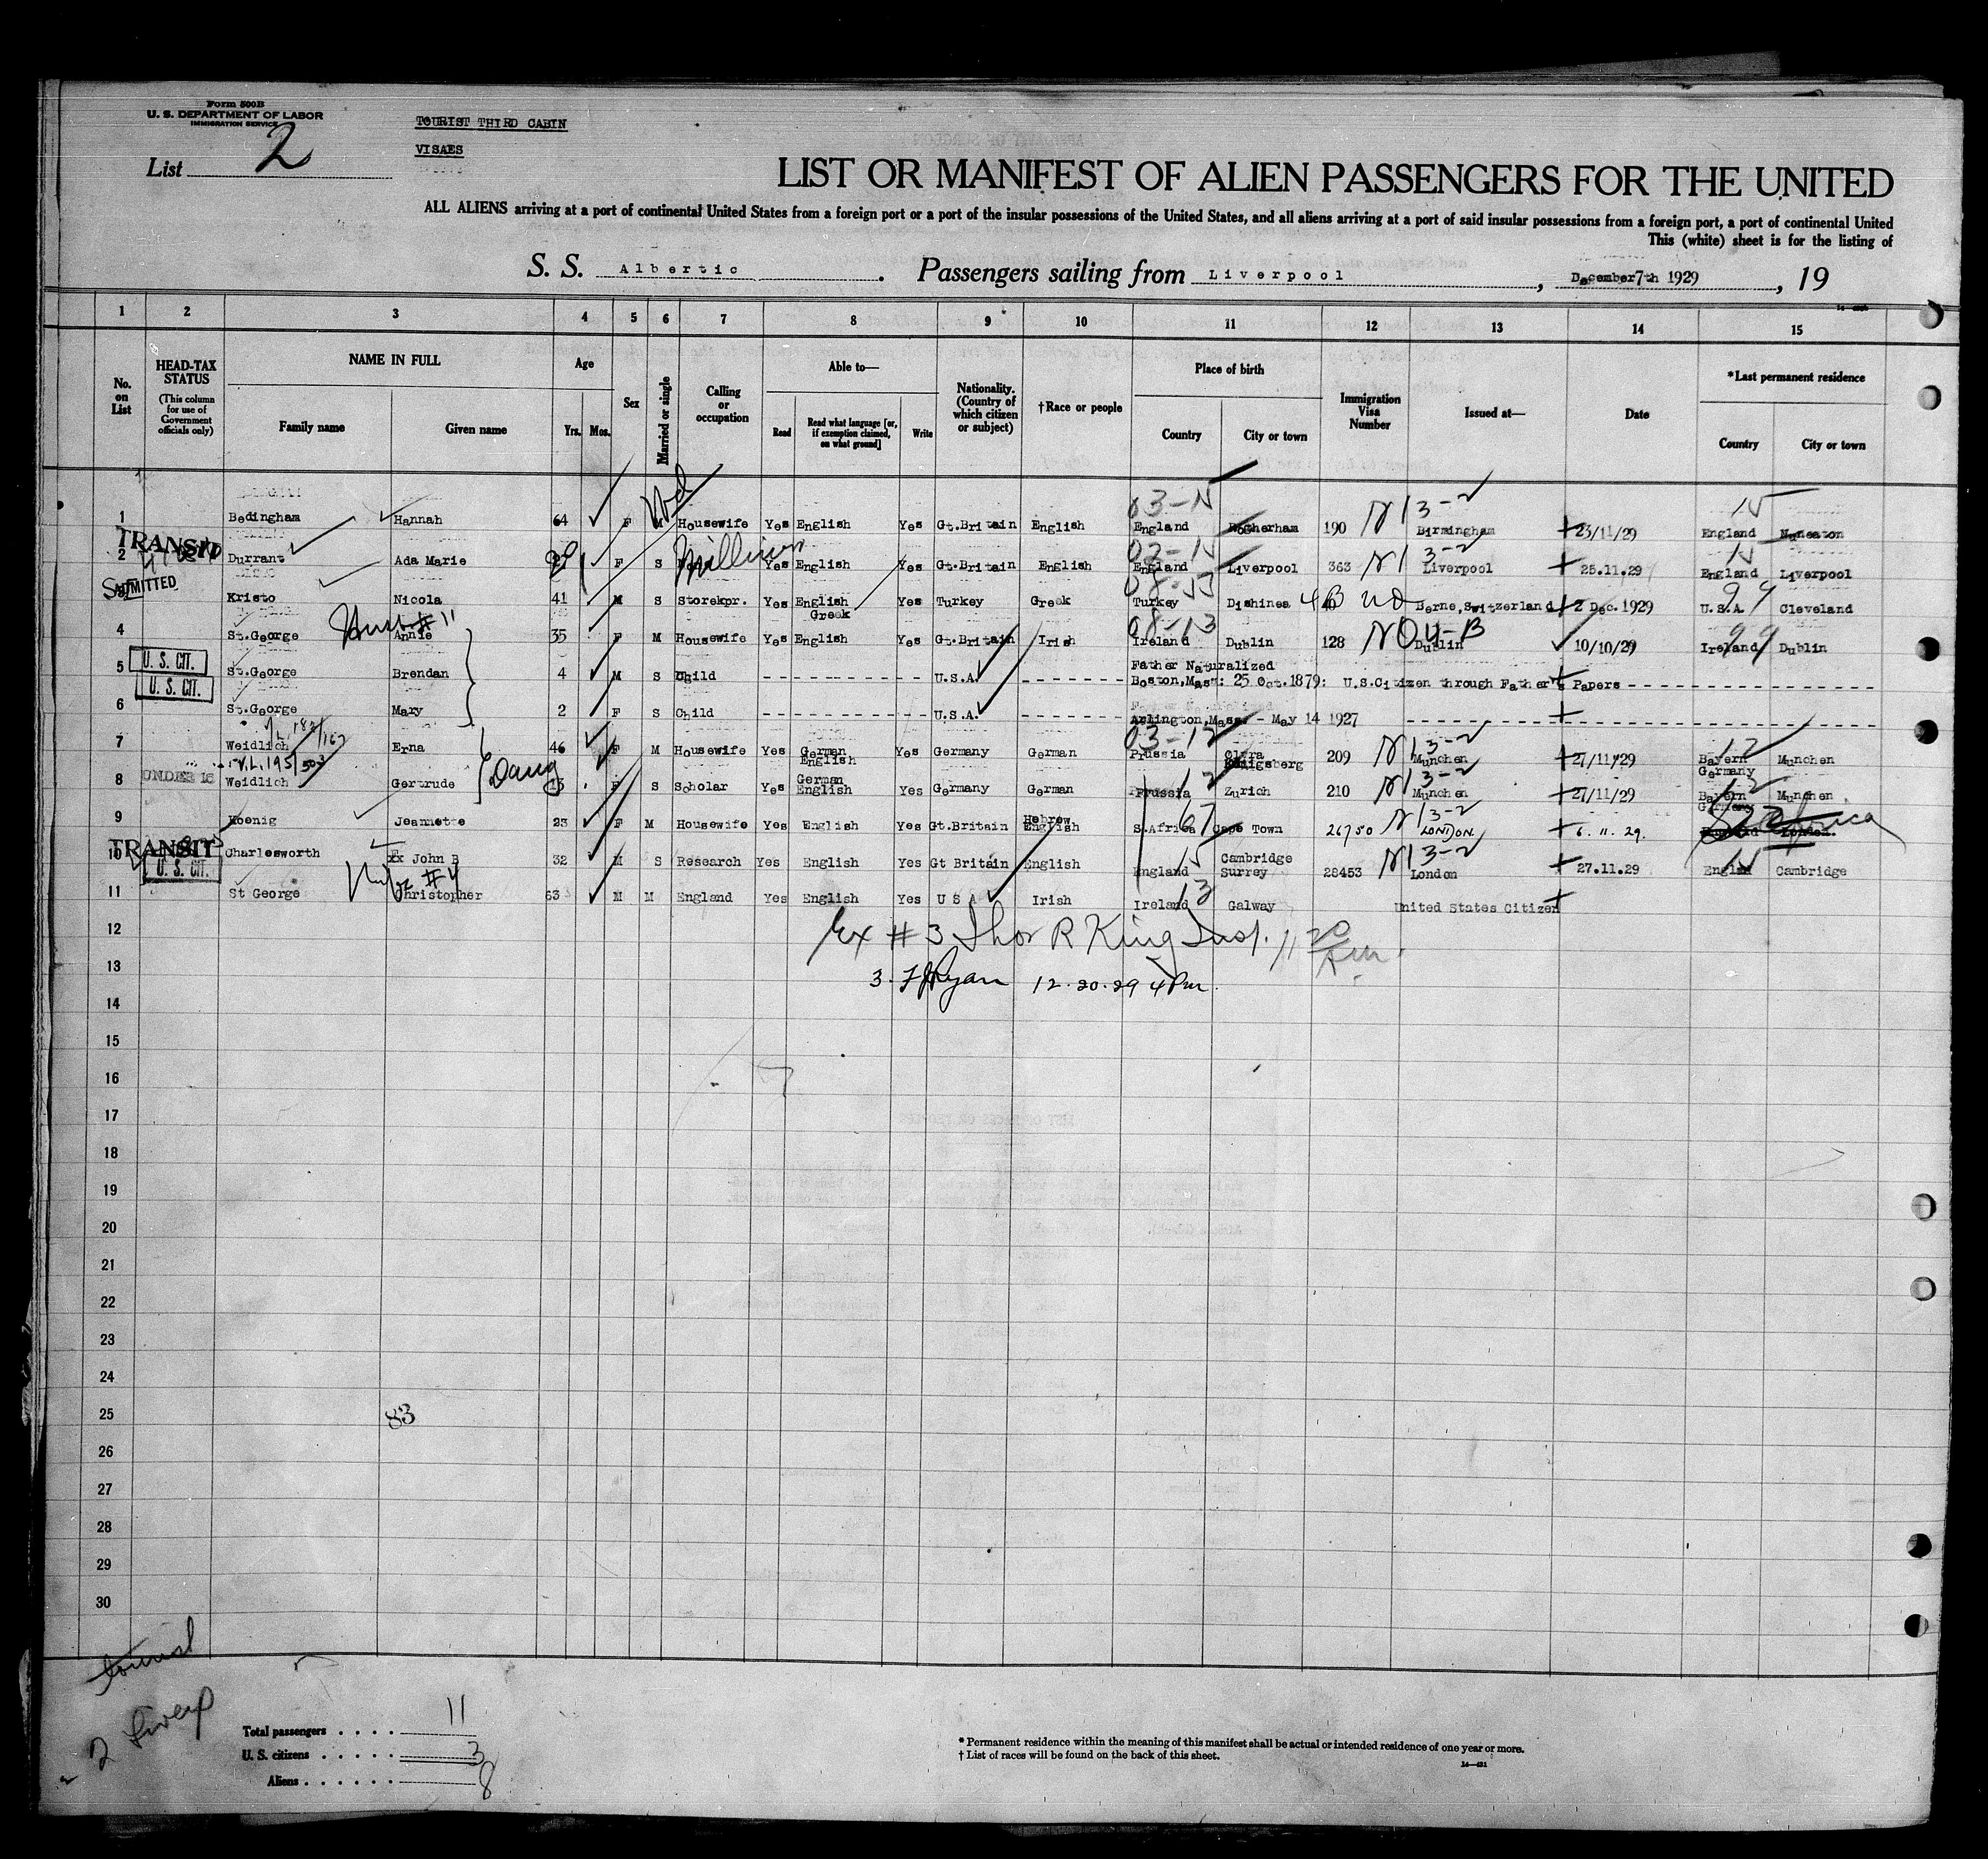 Form 500B
U. S. DEPARTMENT OF LABOR
IMMIGRATION SERVICE
TOURIST THIRD CABIN
VISAES
List 2
LIST OR MANIFEST OF ALIEN PASSENGERS FOR THE UNITED
ALL ALIENS arriving at a port of continental United States from a foreign port or a port of the insular possessions of the United States, and all aliens arriving at a port of said insular possessions from a foreign port, a port of continental United
This (white) sheet is for the listing of
S. S. Albertic. Passengers sailing from Liverpool, December 7th 1929, 19
1 2 3 4 5 6 7 8 9 10 11 12 13 14 15
No. on List
HEAD-TAX STATUS (This column for use of Government officials only)
NAME IN FULL
Family name Given name
Age
Yrs. Mos.
Sex
Married or single
Calling or occupation
Able to—
Read Read what language [or, if exemption claimed, on what ground] Write
Nationality. (Country of which citizen or subject)
†Race or people
Place of birth
Country City or town
Immigration Visa Number
Issued at—
Date
*Last permanent residence
Country City or town
Wd 03-15 N13-2 15
1 Bedingham Hannah 64 F M Housewife Yes English Yes Gt.Britain English England Rotherham 190 Birmingham 23/11/29 England Nuneaton
TRANSIT Milliner 02-15 N1 3-2 15
2 Durrant Ada Marie F S Yes English Yes Gt.Britain English England Liverpool 363 Liverpool 25.11.29 England Liverpool
ADMITTED 99
Kristo Nicola 41 M S Storekpr. Yes English Greek Yes Turkey Greek Turkey Dishinea 4B Berne, Switzerland 2 Dec. 1929 U.S.A. Cleveland
Husb # 11 08-13 NO 4-B 99
4 St.George Annie 35 F M Housewife Yes English Yes Gt.Britain Irish Ireland Dublin 128 Dublin 10/10/29 Ireland Dublin
U. S. CIT.
5 St.George Brendan 4 M S Child U.S.A. Father Naturalized
Boston, Mass: 25 Oct.1879: U.S.Citizen through Father's Papers
U. S. CIT.
6 St.George Mary 2 F S Child U.S.A. Arlington, Mass. - May 14 1927
03-12 N13-2 12
7 Weidlich Erna 46 F M Housewife Yes German English Yes Germany German Prussia Konigsberg 209 Munchen 27/11/29 Bayern Germany Munchen
V.L.195/503
UNDER 16 Daug 12 N13-2 12
8 Weidlich Gertrude 13 F S Scholar Yes German English Yes Germany German Prussia Zurich 210 Munchen 27/11/29 Bayern Germany Munchen
67 N13-2 S Africa
9 Koenig Jeannette 23 F M Housewife Yes English Yes Gt.Britain Hebrew English S.Africa Cape Town 26750 LONDON. 6. 11. 29. England London.
TRANSIT 15 N13-2 15
10 Charlesworth xx John B 32 M S Research Yes English Yes Gt Britain English England Cambridge Surrey 28453 London 27.11.29 England Cambridge
U. S. CIT. Wife #4 13
11 St George Christopher 63 M M England Yes English Yes U S A Irish Ireland Galway United States Citizen
12 Ex # 3 Thos R King Insp. 11 20 Am.
13 3. F J Ryan 12.20.29 4 Pm.
14
15
16
17
18
19
20
21
22
23
24
25 83
26
27
28
29
30
tourist
2 Liverp
Total passengers . . . . 11
U. S. citizens . . . . . 3
Aliens . . . . . . 8
* Permanent residence within the meaning of this manifest shall be actual or intended residence of one year or more.
† List of races will be found on the back of this sheet.